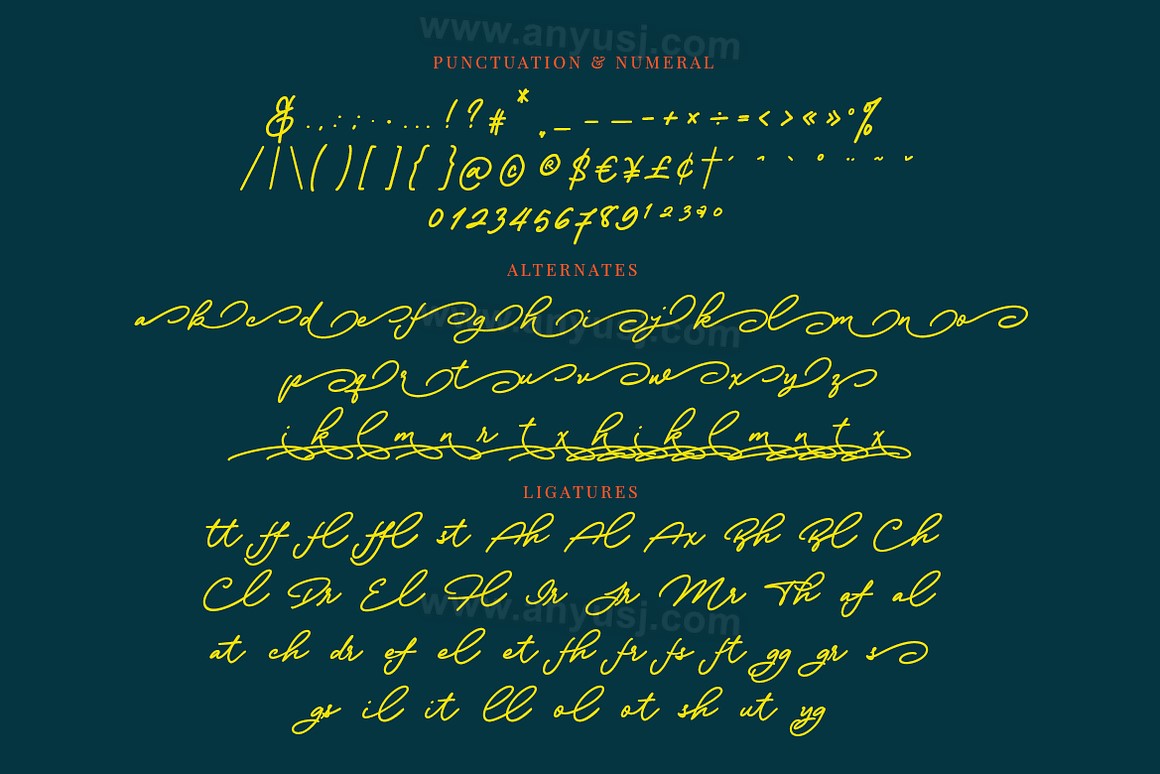 www.anyusj.com
PUNCTUATION & NUMERAL
& . , : ; · • ... ! ? # * . , _ - – — - + × ÷ = < > « » ° %
/ | \ ( ) [ ] { } @ © ® $ € ¥ £ ¢ † ´ ˆ ` ˚ ¨ ~ ˇ
0 1 2 3 4 5 6 7 8 9 ¹ ² ³ ª º
ALTERNATES
a b c d e f g h i j k l m n o
www.anyusj.com
p q r t u v w x y z
i k l m n r t x h i k l m n t x
LIGATURES
tt ff fl ffl st Ah Al Ax Bh Bl Ch
Cl Dr El Fl Ir Jr Mr Th af al
www.anyusj.com
at ch dr ef el et fh fr fs ft gg gr s
gs il it ll ol ot sh ut yg